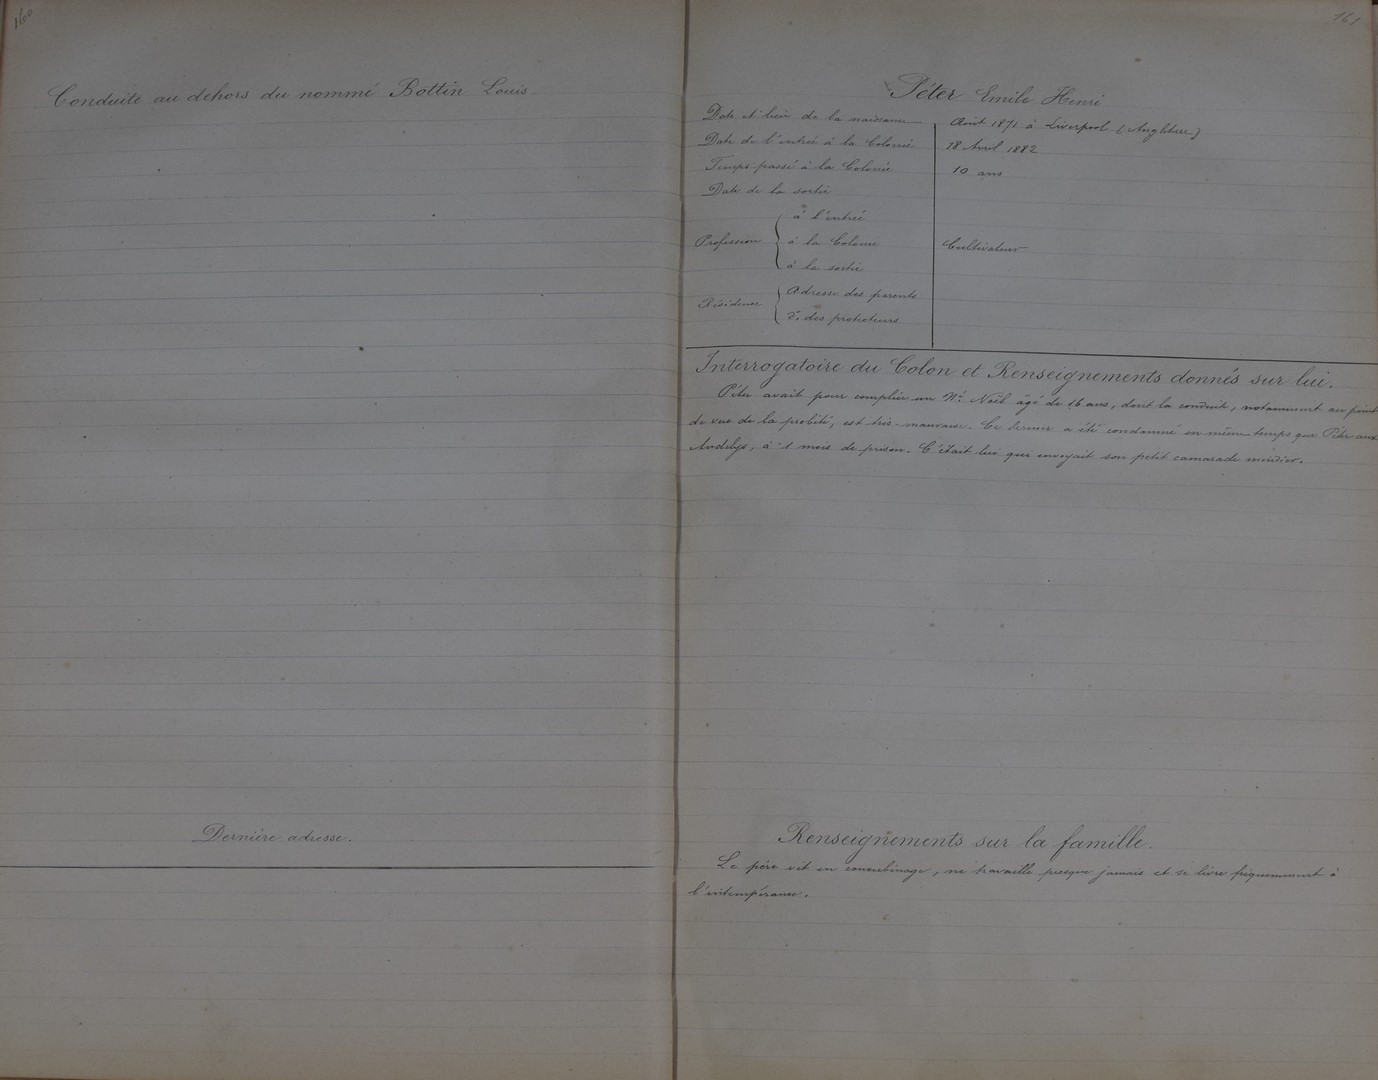 160
Conduite au dehors du nommé Bottin Louis
Dernière adresse.
161
Péter Emile Henri
Date et lieu de la naissance Août 1871 à Liverpool (Angleterre)
Date de l'entrée à la Colonie 18 Avril 1882
Temps passé à la Colonie 10 ans
Date de la sortie
Profession
à l'entrée
à la Colonie Cultivateur
à la sortie
Résidence
Adresse des parents
d°. des protecteurs
Interrogatoire du Colon et Renseignements donnés sur lui.
Péter avait pour complice un Né Noël âgé de 16 ans, dont la conduite, notamment au point
de vue de la probité, est très-mauvaise. Ce dernier a été condamné en même temps que Péter aux
Andelys, à 1 mois de prison. C'était lui qui envoyait son petit camarade mendier.
Renseignements sur la famille.
Le père vit en concubinage, ne travaille presque jamais et se livre fréquemment à
l'intempérance.